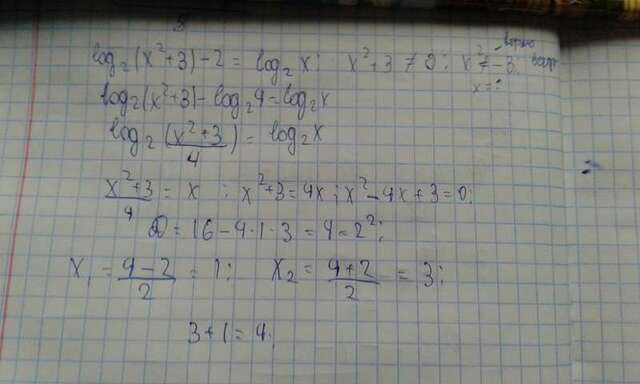 log₂(x²+3)-2 = log₂x ; x²+3 ≠ 0 ; x² ≠ -3
log₂(x²+3) - log₂4 = log₂x
log₂((x²+3)/4) = log₂x
(x²+3)/4 = x ; x²+3=4x ; x²-4x+3=0;
D = 16-4·1·3 = 4 = 2²;
x₁ = (4-2)/2 = 1; x₂ = (4+2)/2 = 3;
3+1=4;